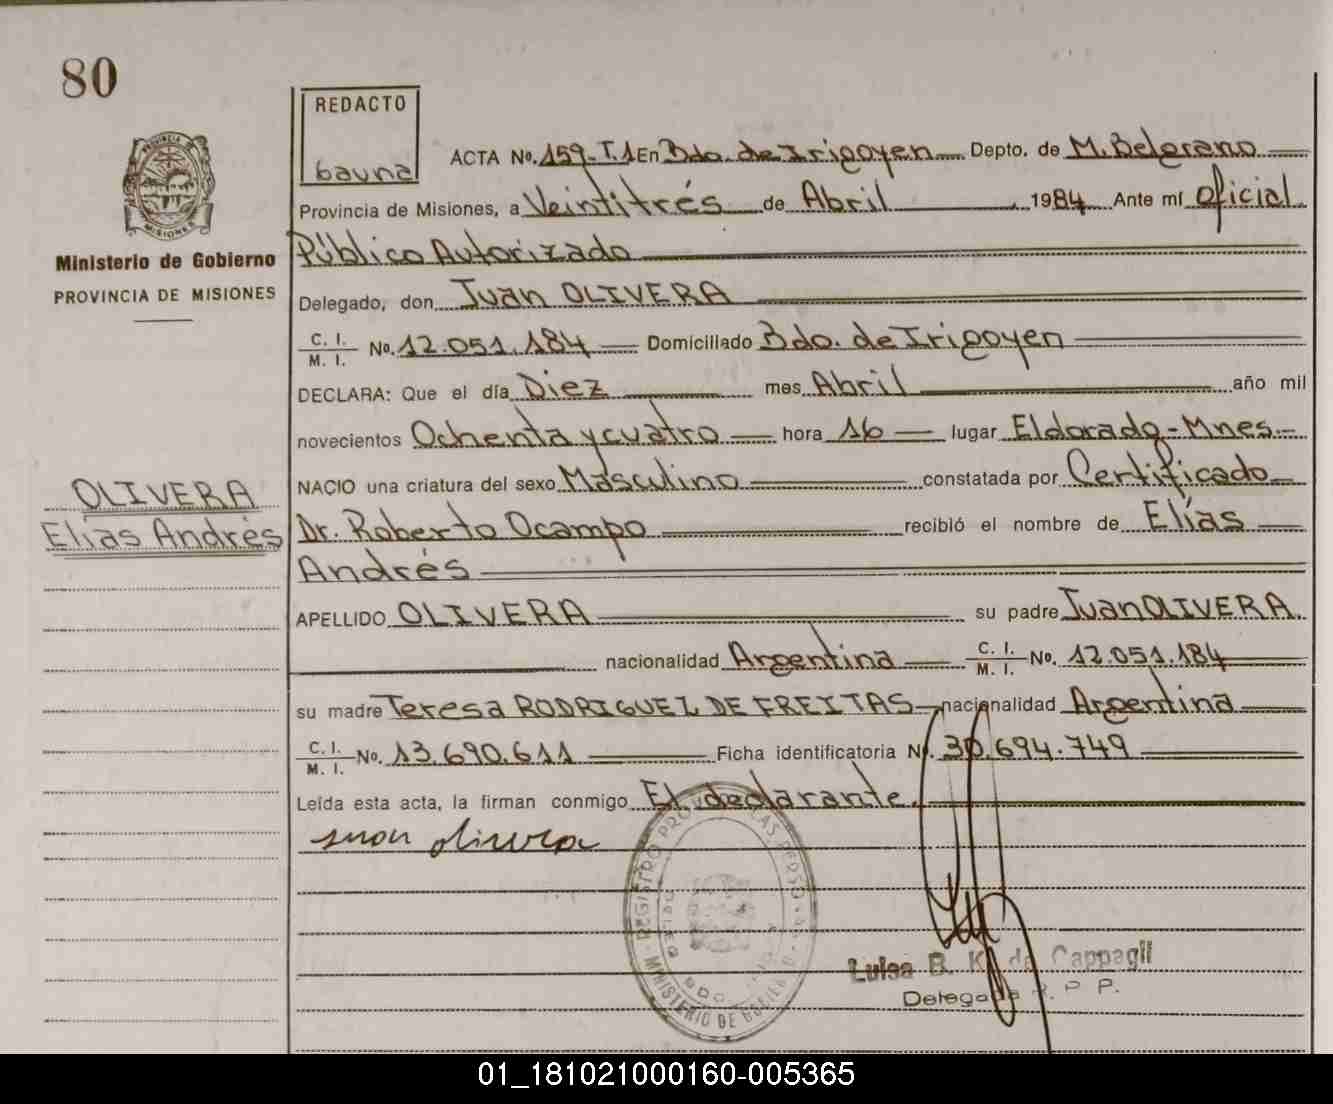 80
REDACTO
bauna
PROVINCIA DE
MISIONES
Ministerio de Gobierno
PROVINCIA DE MISIONES
OLIVERA
Elías Andrés
ACTA No. 159-T.1 En Bdo. de Irigoyen Depto. de M. Belgrano
Provincia de Misiones, a Veintitrés de Abril 1984 Ante mí Oficial
Público Autorizado
Delegado, don Juan OLIVERA
C. I. / M. I. No. 12.051.184 Domiciliado Bdo. de Irigoyen
DECLARA: Que el día Diez mes Abril año mil
novecientos Ochenta y cuatro hora 16 lugar Eldorado-Mnes-
NACIO una criatura del sexo Masculino constatada por Certificado
Dr. Roberto Ocampo recibió el nombre de Elías
Andrés
APELLIDO OLIVERA su padre Juan OLIVERA.
nacionalidad Argentina C. I. / M. I. No. 12.051.184
su madre Teresa RODRIGUEZ DE FREITAS nacionalidad Argentina
C. I. / M. I. No. 13.690.611 Ficha identificatoria N. 30.694.749
Leída esta acta, la firman conmigo El declarante.
Juan olivera
REGISTRO PROV LAS PERSO
MINISTERIO DE GOBIER
Luisa B. K. de Cappagli
Delegada R. P. P.
01_181021000160-005365